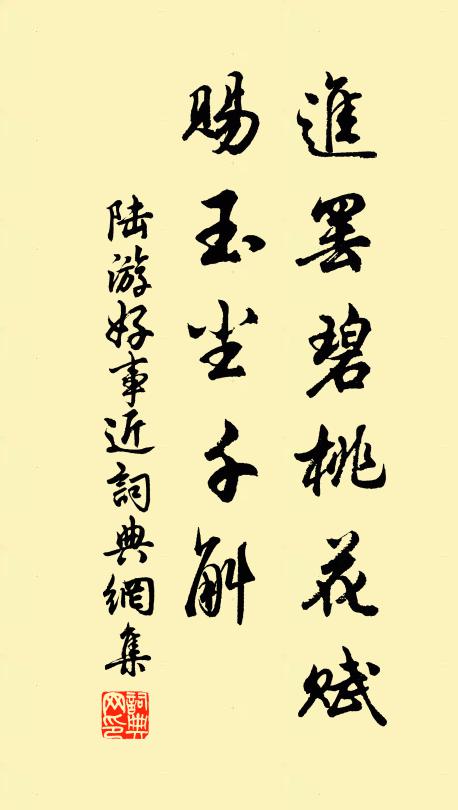 進罢碧桃花赋
賜玉尘千斛
陆游好事近詞典網集
詞典网印